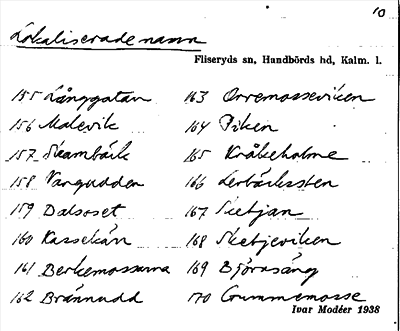 10
Lokaliserade namn
Fliseryds sn, Handbörds hd, Kalm. l.
155 Långgatan
156 Malevik
157 Skambäck
158 Vargudden
159 Dalsoset
160 Kassekärr
161 Berkemossarna
162 Brännudd
163 Orremosseviken
164 Viken
165 Kråkeholme
166 Lerbäckssten
167 Sketjan
168 Sketjeviken
169 Björnsäng
170 Gummemosse
Ivar Modéer 1938